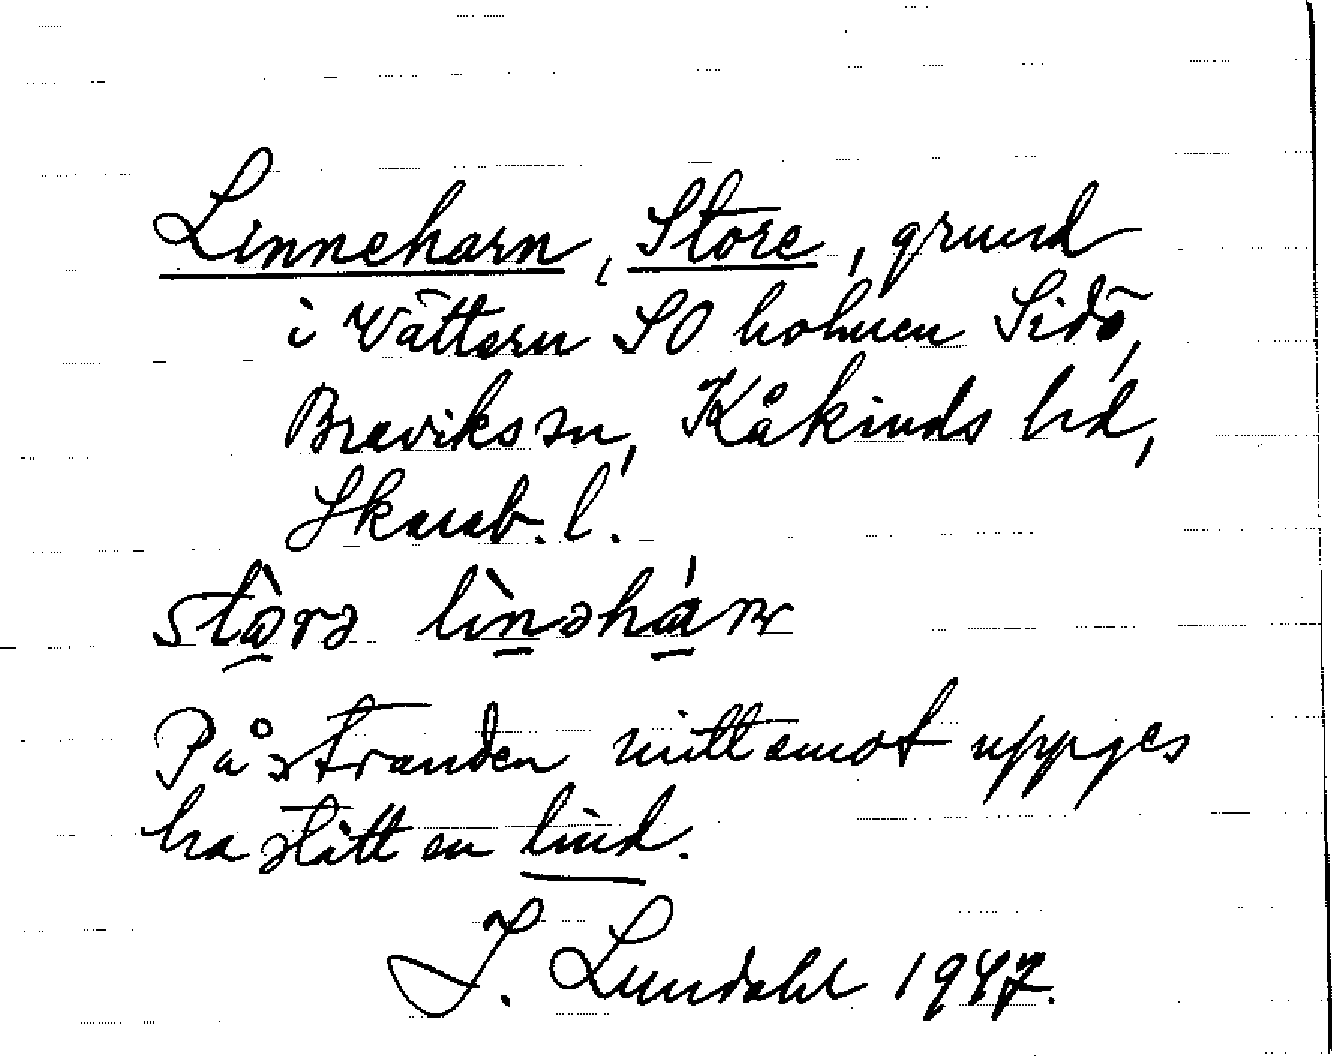 Linneharn, Store, grund
i Vättern SO holmen Sidö,
Breviks sn, Kåkinds hd,
Skarab. l.
stòrə lìnəhár
På stranden mittemot uppges
ha stått en lind.
I. Lundahl 1947.